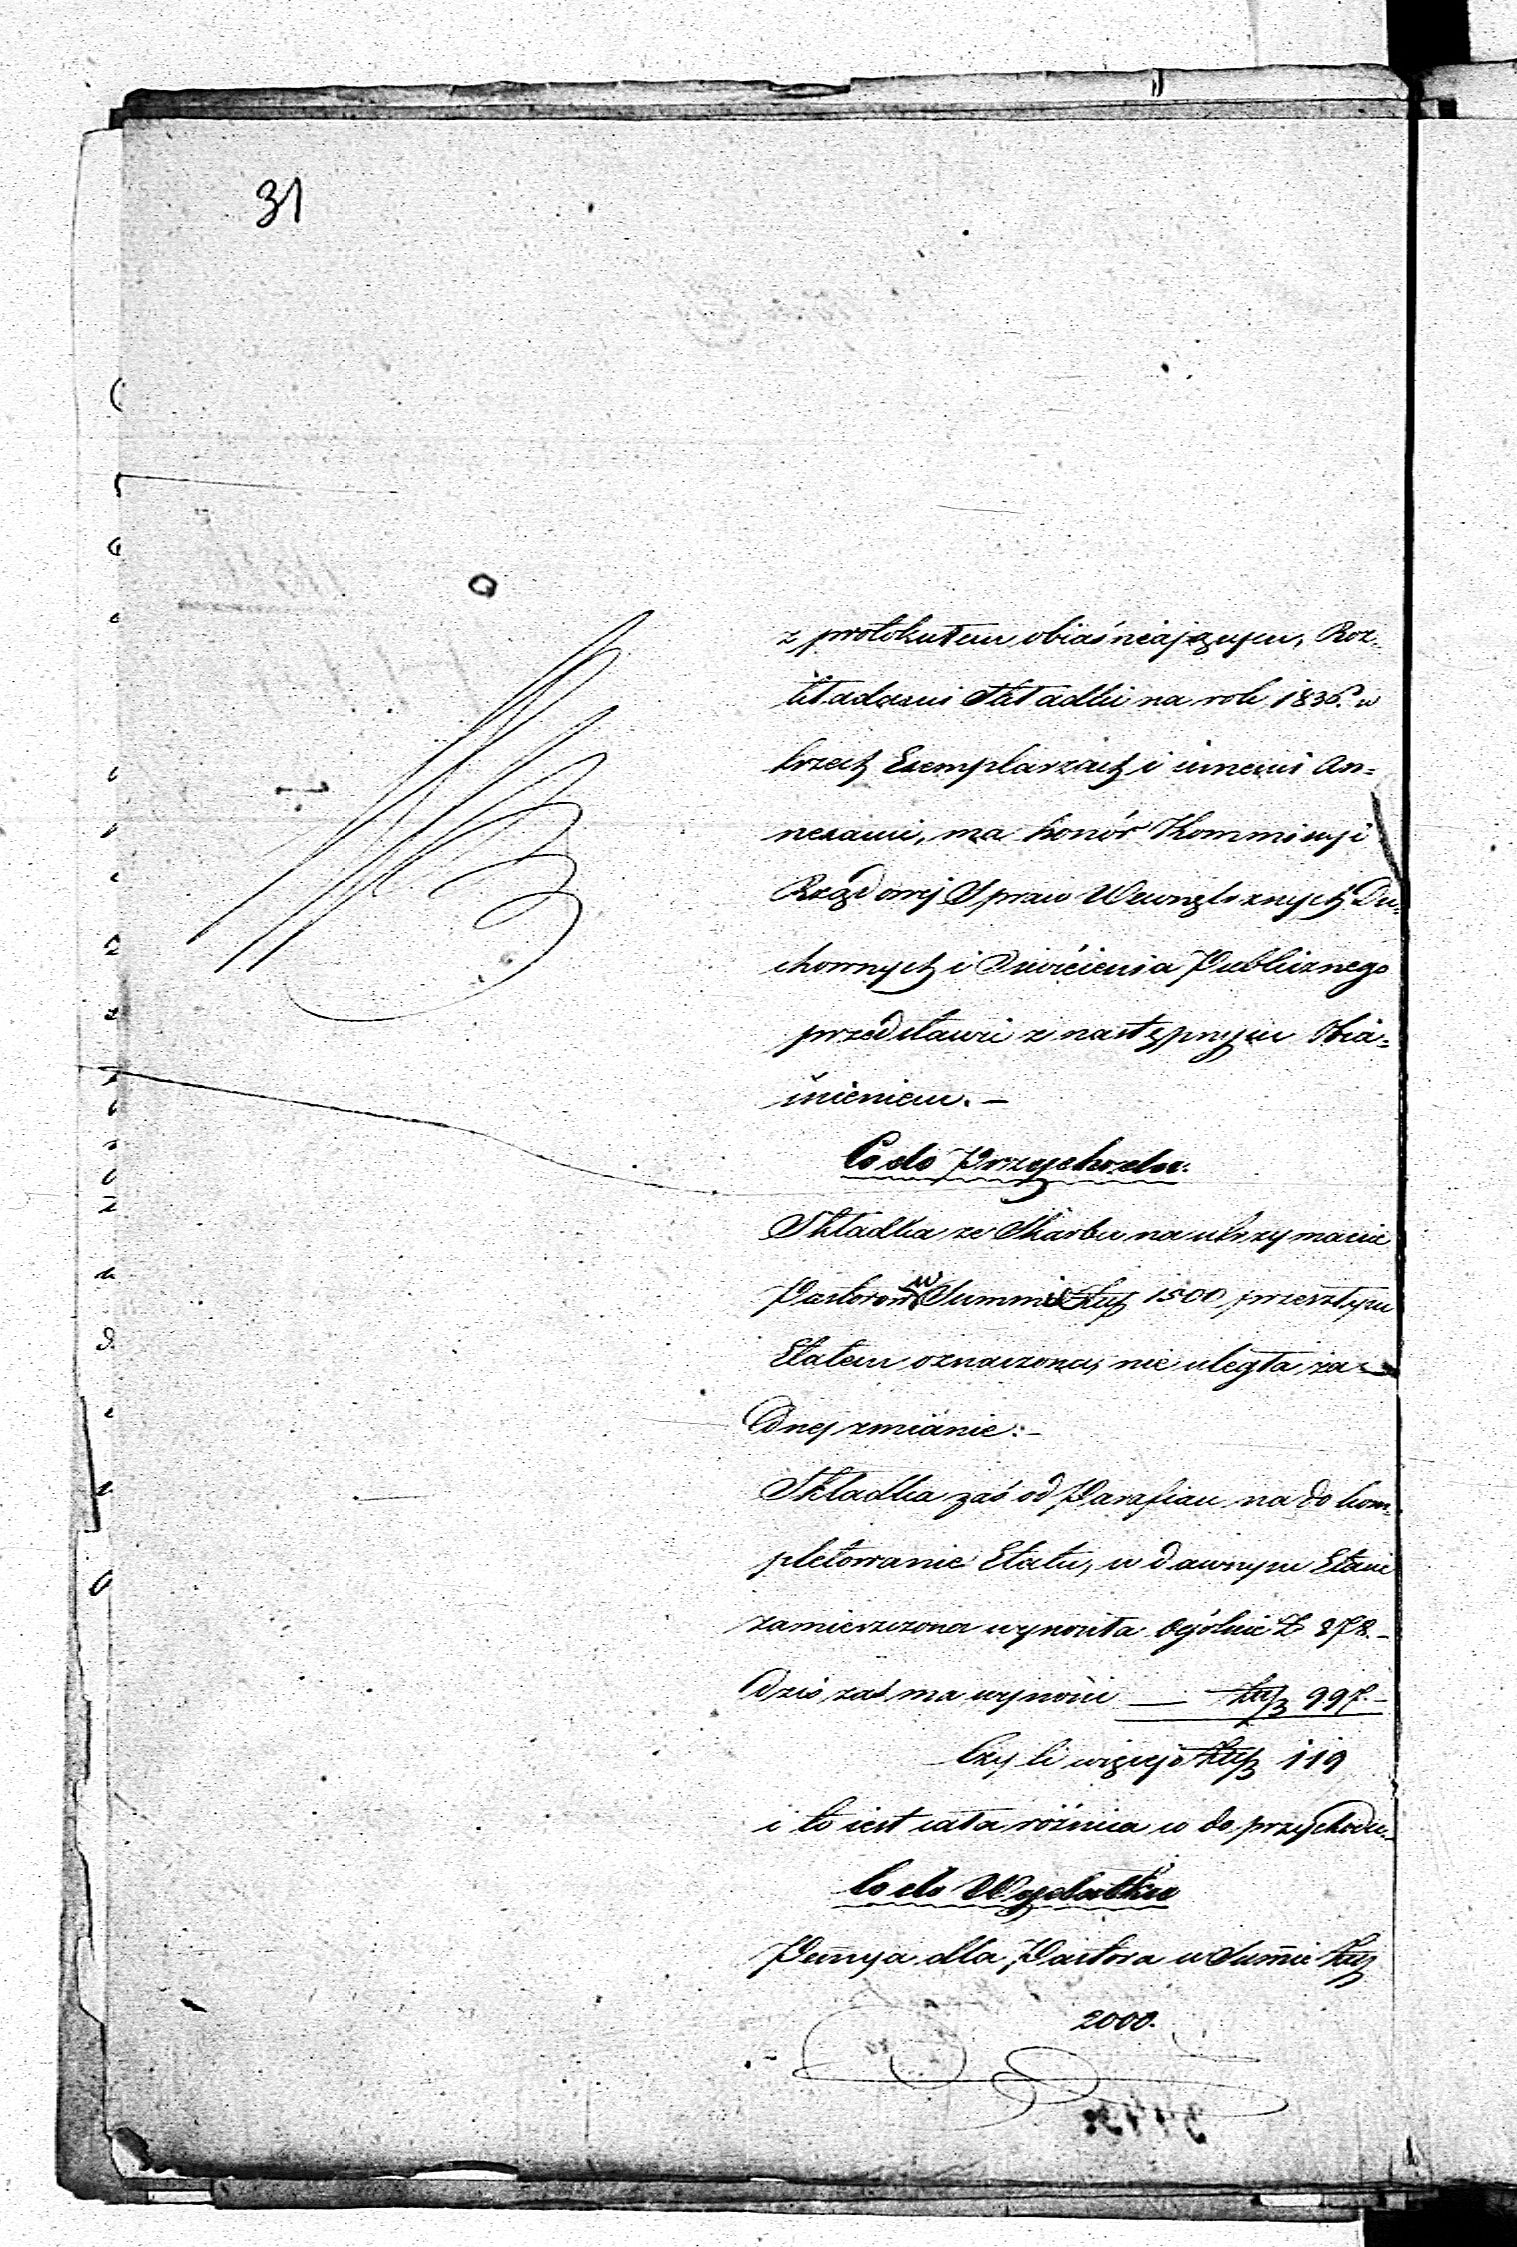 31
z protokułem obiaśniaiącym, Roz-
kładami Składki na rok 1836. w
trzech Exemplarzach i innemi An=
nexami, ma honór Kommissyi
Rządowej Spraw Wewnętrznych Du=
chownych i Oświécienia Publicznego
przedstawić z następnym Obia=
śnieniem. —
Co do Przychodu.
Składka ze Skarbu na utrzymanie
Pastorów w Summie Złp 1500 przeszłym
Etatem oznaczona, nie uległa ża-
dnej zmianie. -
Składka zaś od Parafian na do kom=
pletowanie Etatu, w dawnym Etacie
zamieszczona wynosiła Ogólnie Zł 878. -
Dziś zaś ma wynosić — Złp 997. -
Czyli więcej o Złp 119
i to iest cała różnica co do przychodu. -
Co do Wydatku
Pensya dla Pastora w Summie Złp
2000.